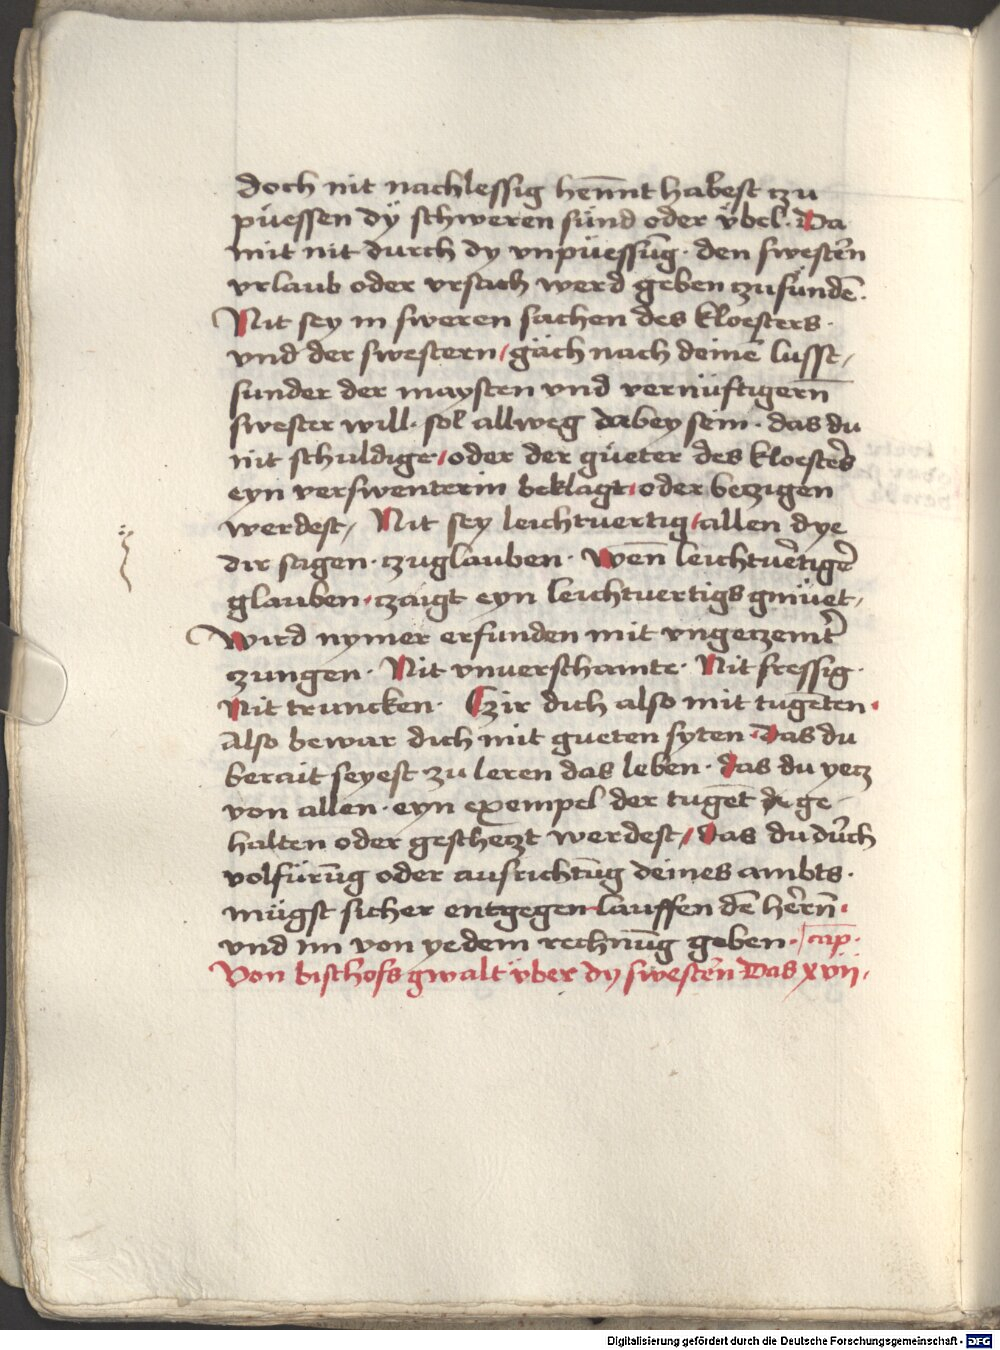 doch nit nachlessig hen̄nt habest czu
püessen dÿ schweren sünd oder v̈bel · Da
mit nit durch dy vnpüessūg · den swester̄n
vrlaub oder vrsach werd geben czusündē ·
Nit sey in sweren sachen des kloesters ·
vnd der swestern / gäch nach deinē lusst /
sunder der maysten vnd vernüftigern̄
swester will · sol allweg dabey sein · das du
nit schuldige / oder der güeter des kloesters
eyn verswenterin beklagt / oder beczigen
werdest / Nit sey leichtvertig / allen dye
dir sagen · czuglauben · Wen̄ leichtvertiger
glauben · czaigt eyn leichtvertigs gmüet /
Wird nymer erfunden mit vngeczemter
czungen · Nit vnverschamte · Nit fressig ·
Nit truncken · Czir dich also mit tugēten ·
Also bewar dich mit gueten syten · Das du
berait seyest zu leren das leben · das du yecz
von allen · eyn exempel der tugēt ge-
halten oder gescheczt werdest / Das du durch
volfürūg oder ausrichtūg deines ambts ·
mügst sicher entgegen lauffen dē hern̄ ·
vnd im von yedem rechnūg geben · cap̄ ·
Von bischofs gwalt v̈ber dy swestern Das xvii ·
Digitalisierung gefördert durch die Deutsche Forschungsgemeinschaft - DFG